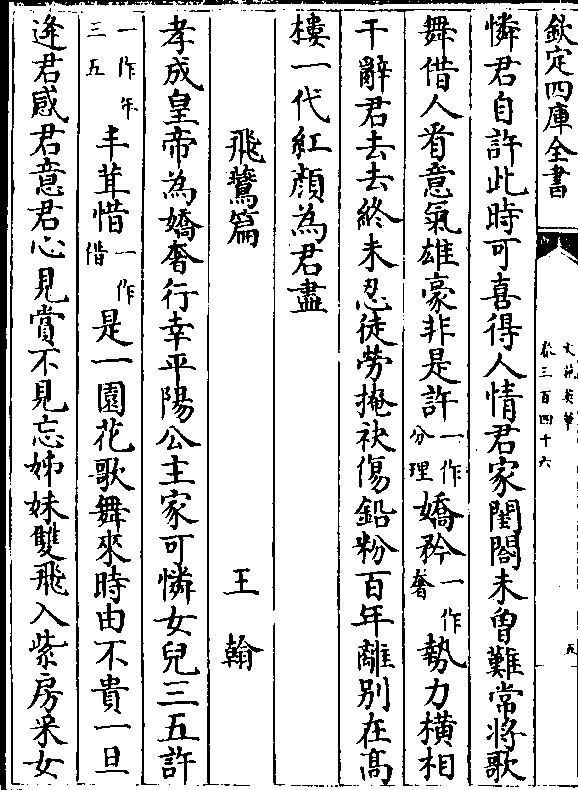 欽定四庫全書
文苑英華
卷三百四十六
五
憐君自許此時可喜得人情君家閨閤未曾難常將歌
舞借人看意氣雄豪非是許一作分理嬌矜一作奢勢力橫相
干辭君去去終未忍徒勞掩袂傷鉛粉百年離别在髙
樓一代紅顔為君盡
飛鷰篇 王翰
孝成皇帝為嬌奢行幸平陽公主家可憐女兒三五許
一作年三五丰茸惜一作偕是一園花歌舞來時由不貴一旦
逄君感君意君心見賞不見忘姊妹雙飛入紫房宋女